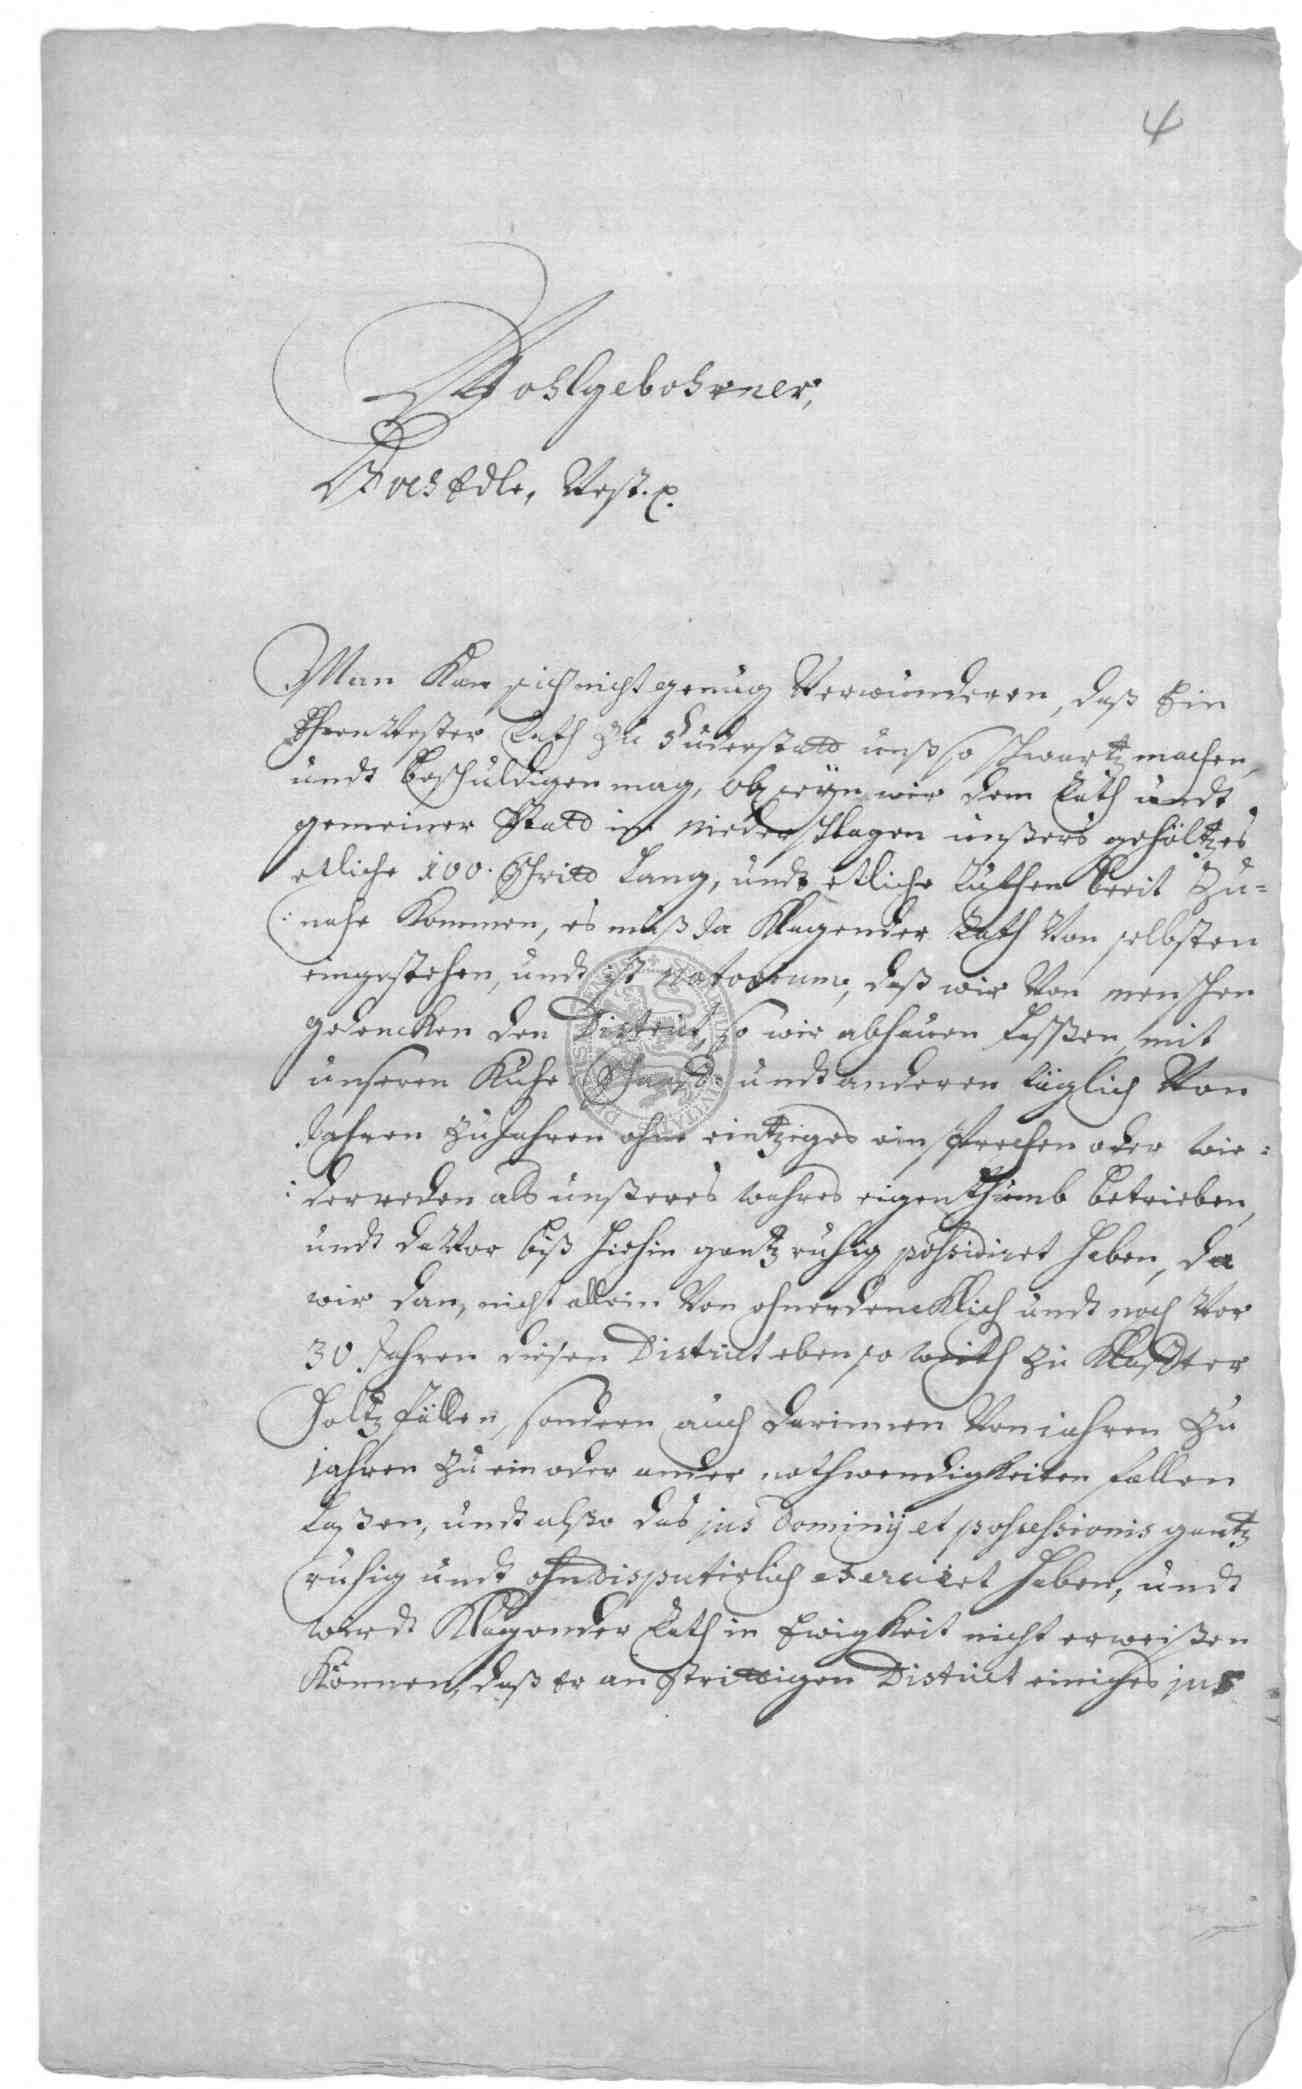 4
Wohlgebohrner,
HochEdle, Vest. p.
Man Kan sich nicht genüg Verwünderen, daß Ein
EhrenVester Rath Zu Düderstatt unß so schwartz machen,
undt beschuldigen mag, ob seyn wir dem Rath undt
gemeiner Statt in niederschlagen unßers gehöltzes
etliche 100. Schritt lang, undt etliche Ruthen breit Zu=
:nahe Kommen, es muß Ja Klagender Rath Von selbsten
eingestehen, undt ist notorium, daß wir Von menschen
gedencken den District, so wir abhauen laßßen, mit
unseren Kuhe, Schaaff= undt anderen täglich Von
Jahren zu Jahren ohne eintziges einsprechen oder wie=
:derreden als unßeres wahres eigenthumb betrieben,
undt davor biß hiehin gantz ruhig possidiret haben, da
wir dan, nicht allein Von ohnerdencklich undt noch Vor
30 Jahren diesen District eben so weith zu Klaffter
holtz fällen, sondern auch darinnen Von jahren zu
jahren zu ein oder ander nothwendigkeiten fallen
laßen, undt alßo das jus dominij et possessionis gantz
ruhig undt ohndisputirlich exerciret haben, undt
wirdt Klagender Rath in Ewigkeit nicht erweißen
Können, daß Er an strittigen District einiges jus